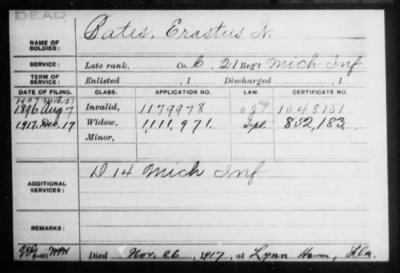 DEAD
NAME OF SOLDIER: Bates, Erastus N.
SERVICE: Late rank, Co. C, 21 Reg't Mich Inf
TERM OF SERVICE: Enlisted , 1 Discharged , 1
DATE OF FILING. CLASS. APPLICATION NO. LAW. CERTIFICATE NO.
1896 Aug 7 Invalid, 1179978 1048151
1917. Dec. 17 Widow, 1,111,971. Sept. 852,183.
Minor,
ADDITIONAL SERVICES: D 14 Mich Inf
REMARKS:
Died Nov. 26, 1917, at Lynn Haven, Fla.